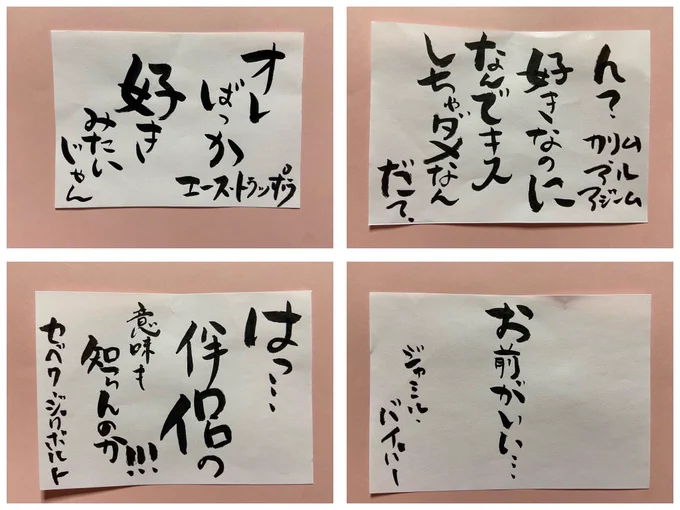 オレ
ばっか
好き
みたい
じゃん
エース・トラッポラ
ん？
好きなのに
なんでキス
しちゃダメなん
だて。
カリム
アル
アジーム
はっ…
伴侶の
意味も
知らんのか!!!
セベク・ジグボルト
お前がいい…
ジャミル・
バイパー